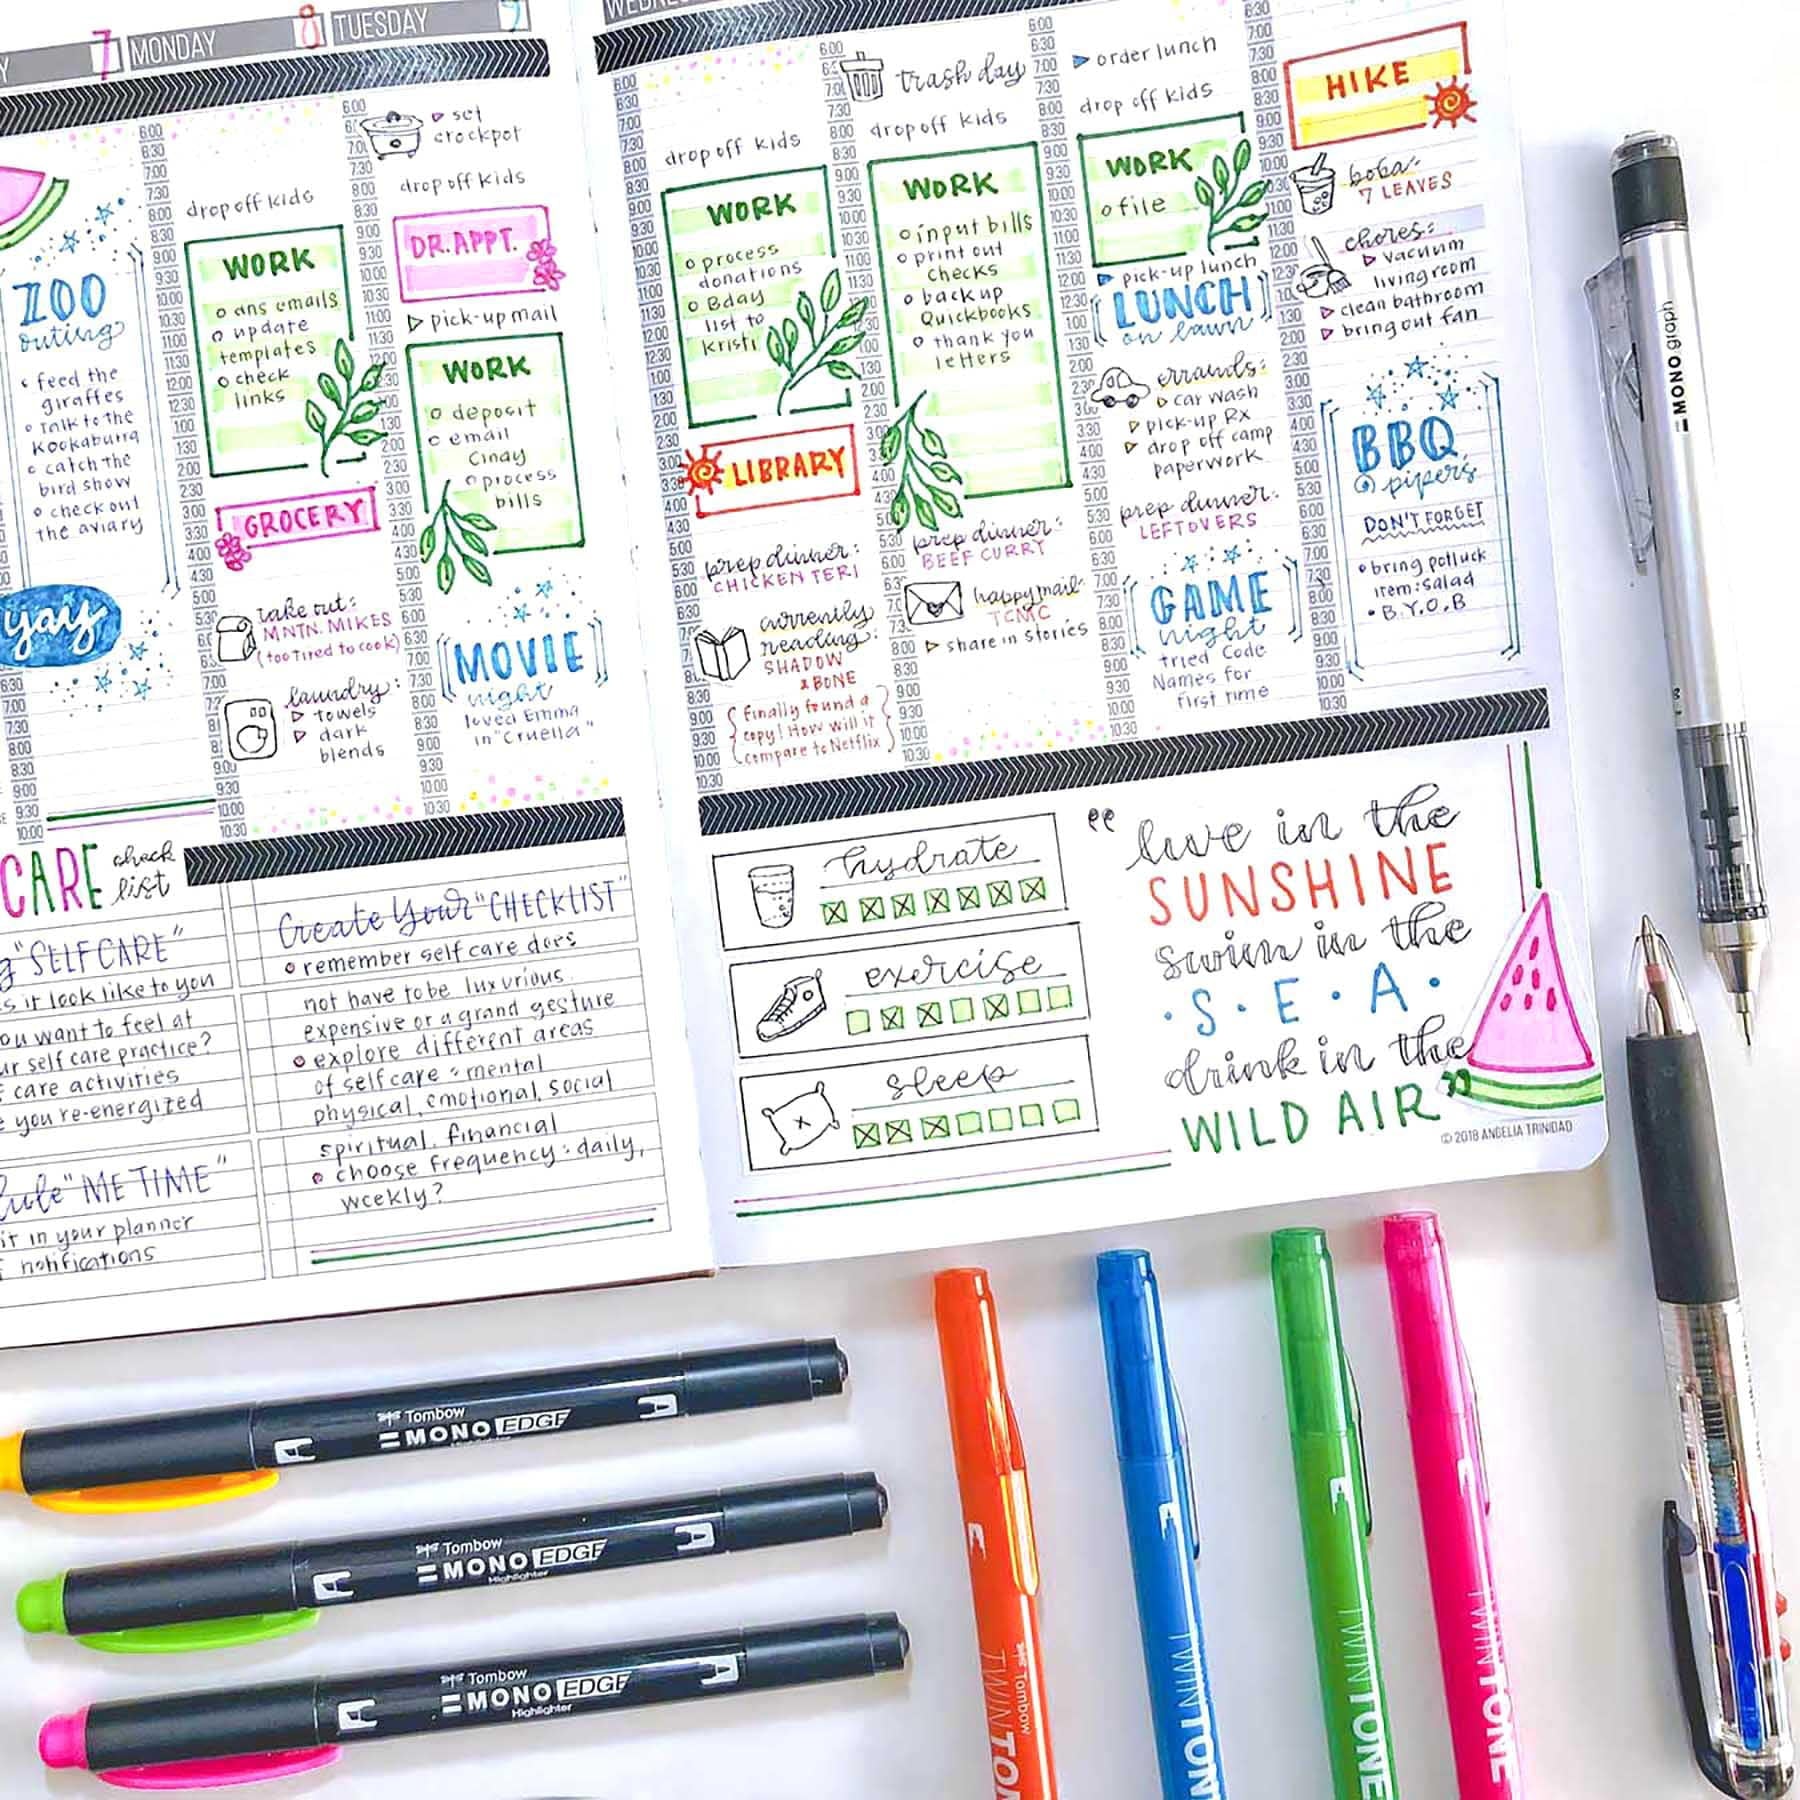 7 MONDAY 8 TUESDAY 9
ZOO
outing
feed the
giraffes
talk to the
Kookaburra
catch the
bird show
check out
the aviary
yay
drop off kids
WORK
ans emails
update
templates
check
links
GROCERY
take out:
MNTN. MIKES
(too tired to cook)
laundry:
towels
dark
blends
set
crockpot
drop off kids
DR. APPT.
pick-up mail
WORK
deposit
email
Cindy
process
bills
MOVIE
night
loved Emma
in "Cruella"
drop off kids
WORK
process
donations
Bday
list to
Kristi
LIBRARY
prep dinner:
CHICKEN TERI
currently
reading:
SHADOW
& BONE
Finally found a
copy! How will it
compare to Netflix
trash day
drop off kids
WORK
input bills
print out
checks
backup
Quickbooks
thank you
letters
prep dinner:
BEEF CURRY
happy mail:
TCMC
share in stories
order lunch
drop off kids
WORK
file
pick-up lunch
LUNCH
on lawn
errands:
car wash
pick-up Rx
drop off camp
paperwork
prep dinner:
LEFTOVERS
GAME
night
tried Code
Names for
first time
HIKE
boba:
7 LEAVES
chores:
vacuum
living room
clean bathroom
bring out fan
BBQ
@ pipers
DON'T FORGET
bring potluck
item: salad
B.Y.O.B
CARE check
list
"SELF CARE"
it look like to you
you want to feel at
self care practice?
care activities
you re-energized
"ME TIME"
it in your planner
notifications
Create Your "CHECKLIST"
remember self care does
not have to be luxurious
expensive or a grand gesture
explore different areas
of self care: mental
physical, emotional, social
spiritual, financial
choose frequency: daily,
weekly?
hydrate
exercise
sleep
"live in the
SUNSHINE
swim in the
· S · E · A ·
drink in the
WILD AIR"
© 2018 ANGELIA TRINIDAD
MONO graph
Tombow
MONO EDGE
Tombow
MONO EDGE
Highlighter
Tombow
MONO EDGE
Highlighter
Tombow
TWINTON
TWINTONE
TWINTONE
TWINTONE